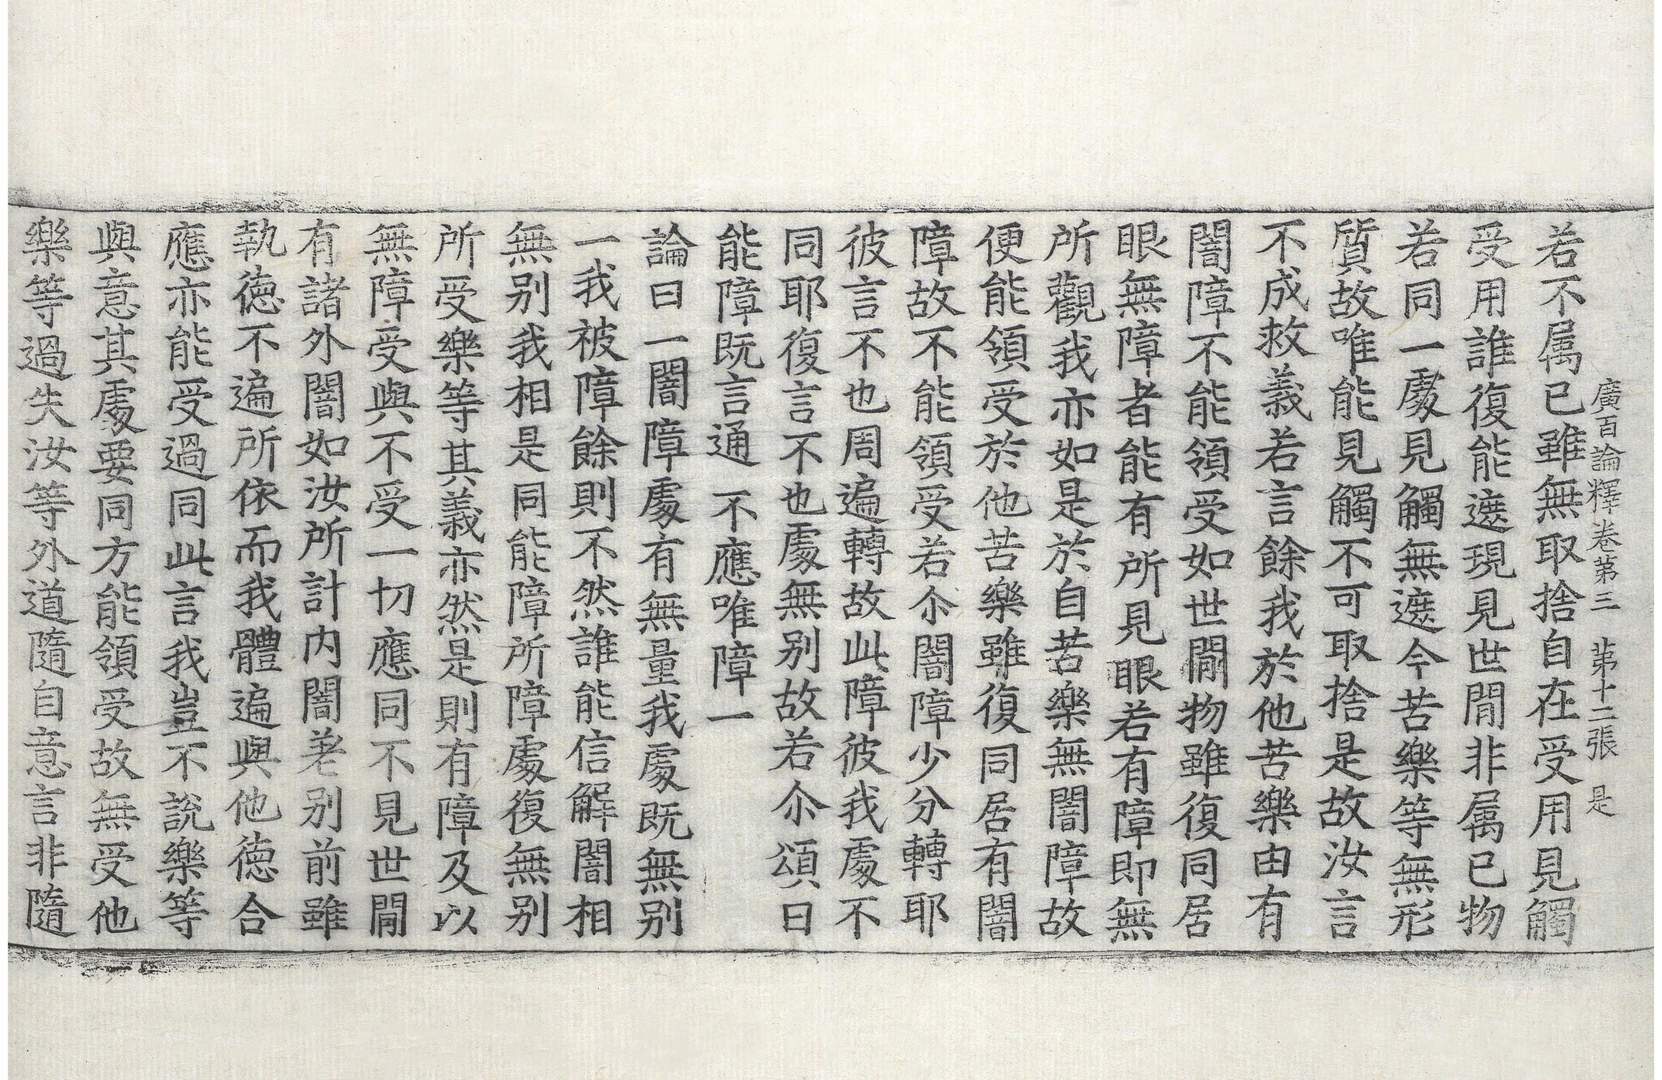 廣百論釋卷第三　第十二張　是
若不属己雖無取捨自在受用見觸
受用誰復能遮現見世間非属己物
若同一處見觸無遮今苦樂等無形
質故唯能見觸不可取捨是故汝言
不成救義若言餘我於他苦樂由有
闇障不能領受如世間物雖復同居
眼無障者能有所見眼若有障即無
所觀我亦如是於自苦樂無闇障故
便能領受於他苦樂雖復同居有闇
障故不能領受若尒闇障少分轉耶
彼言不也周遍轉故此障彼我處不
同耶復言不也處無别故若尒頌曰
能障既言通　不應唯障一
論曰一闇障處有無量我處既無别
一我被障餘則不然誰能信解闇相
無别我相是同能障所障處復無别
所受樂等其義亦然是則有障及以
無障受與不受一切應同不見世間
有諸外闇如汝所計内闇差别前雖
執德不遍所依而我體遍與他德合
應亦能受過同此言我豈不說樂等
與意其處要同方能領受故無受他
樂等過失汝等外道隨自意言非隨